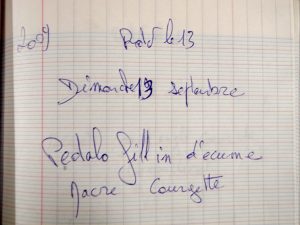 2009
le 13
Dimanche 13 septembre
Pedalo fill in d'écume
Nacre Courgette